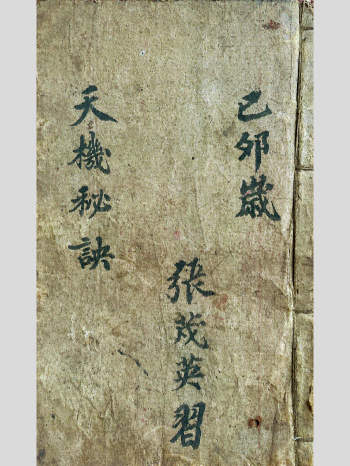 己卯歲
張茂英習
天機秘訣